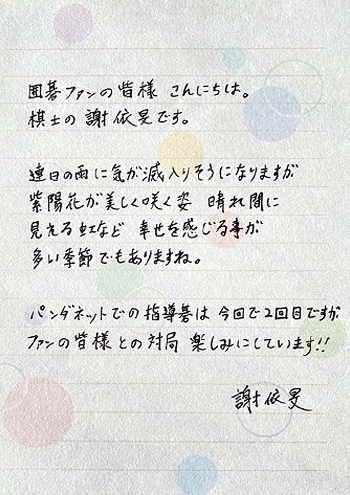 囲碁ファンの皆様 こんにちは。
棋士の 謝 依旻です。
連日の雨に気が滅入りそうになりますが
紫陽花が美しく咲く姿 晴れ間に
見える虹など 幸せを感じる事が
多い季節でもありますね。
パンダネットでの指導碁は 今回で2回目ですが
ファンの皆様との対局 楽しみにしています!!
謝依旻